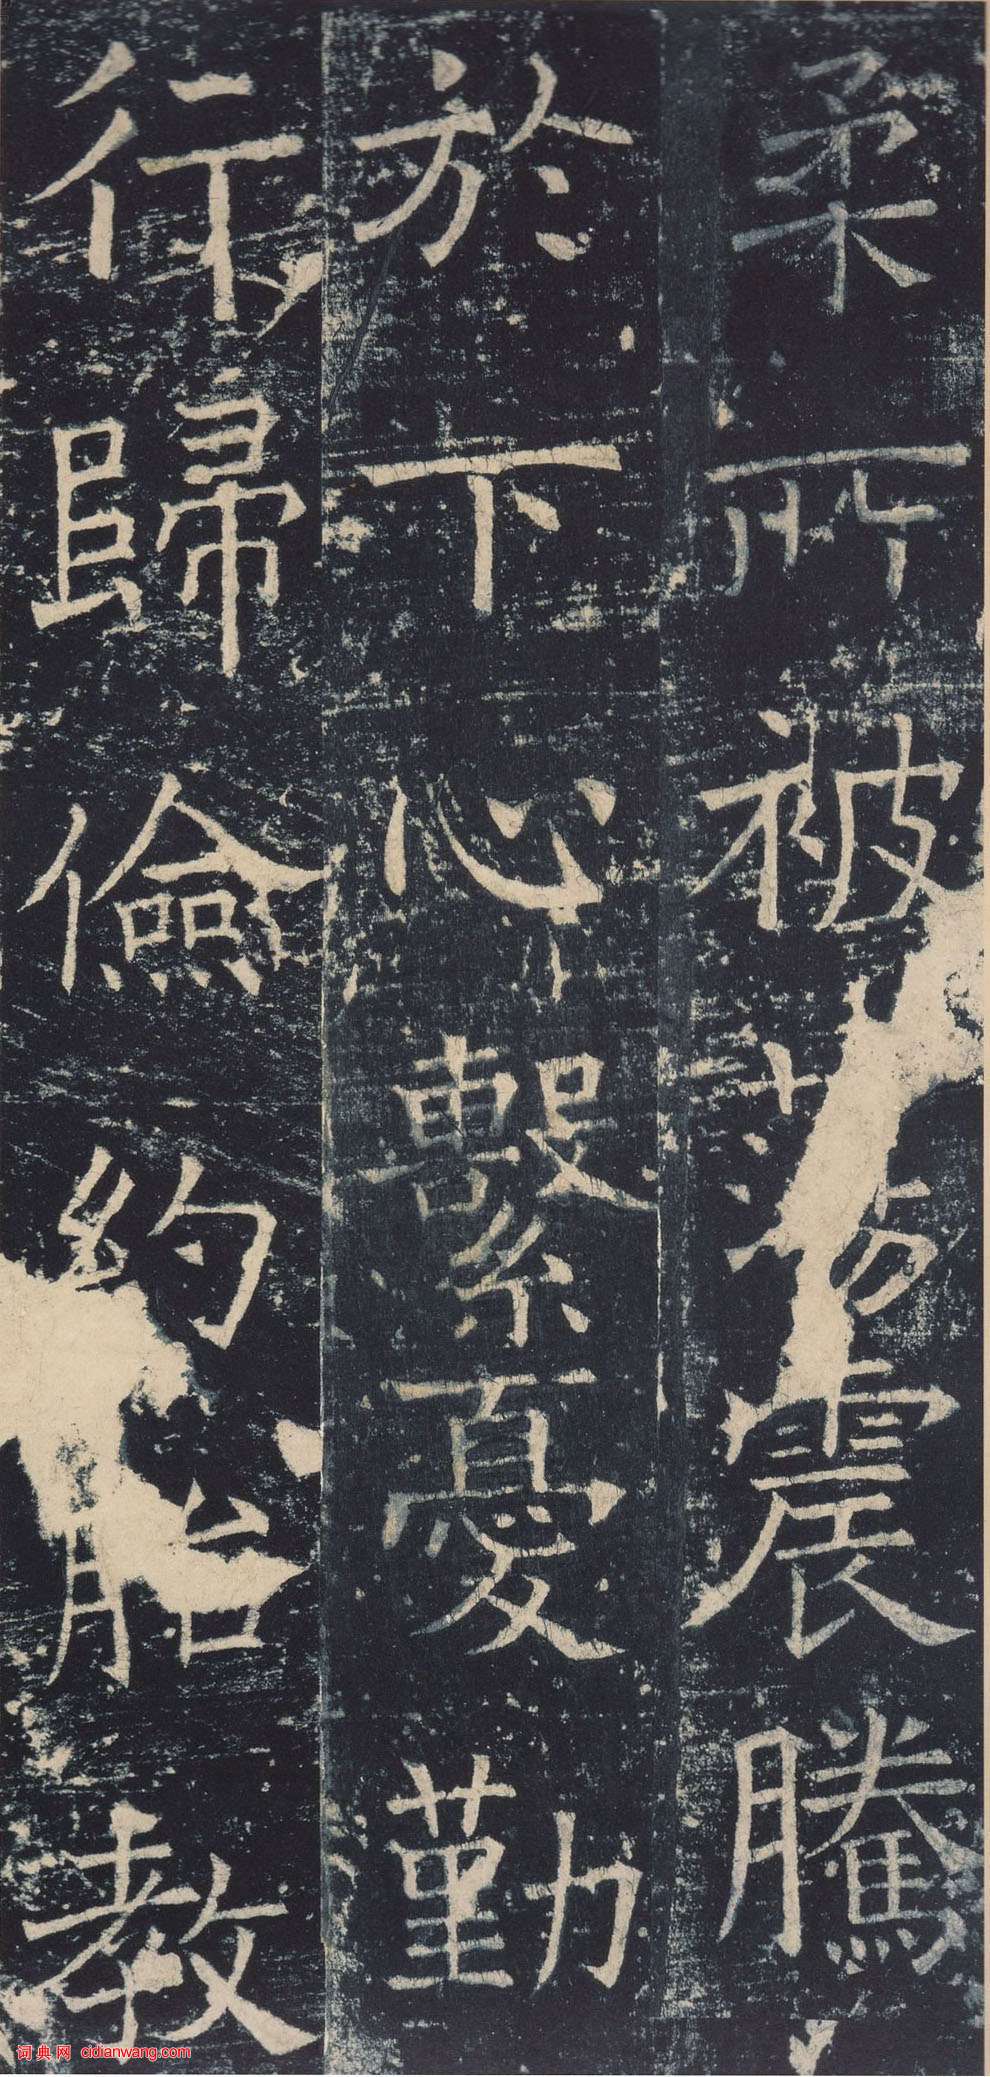 柔所被荡震騰
於下心繫憂勤
行歸儉約胎教
词典网 cidianwang.com